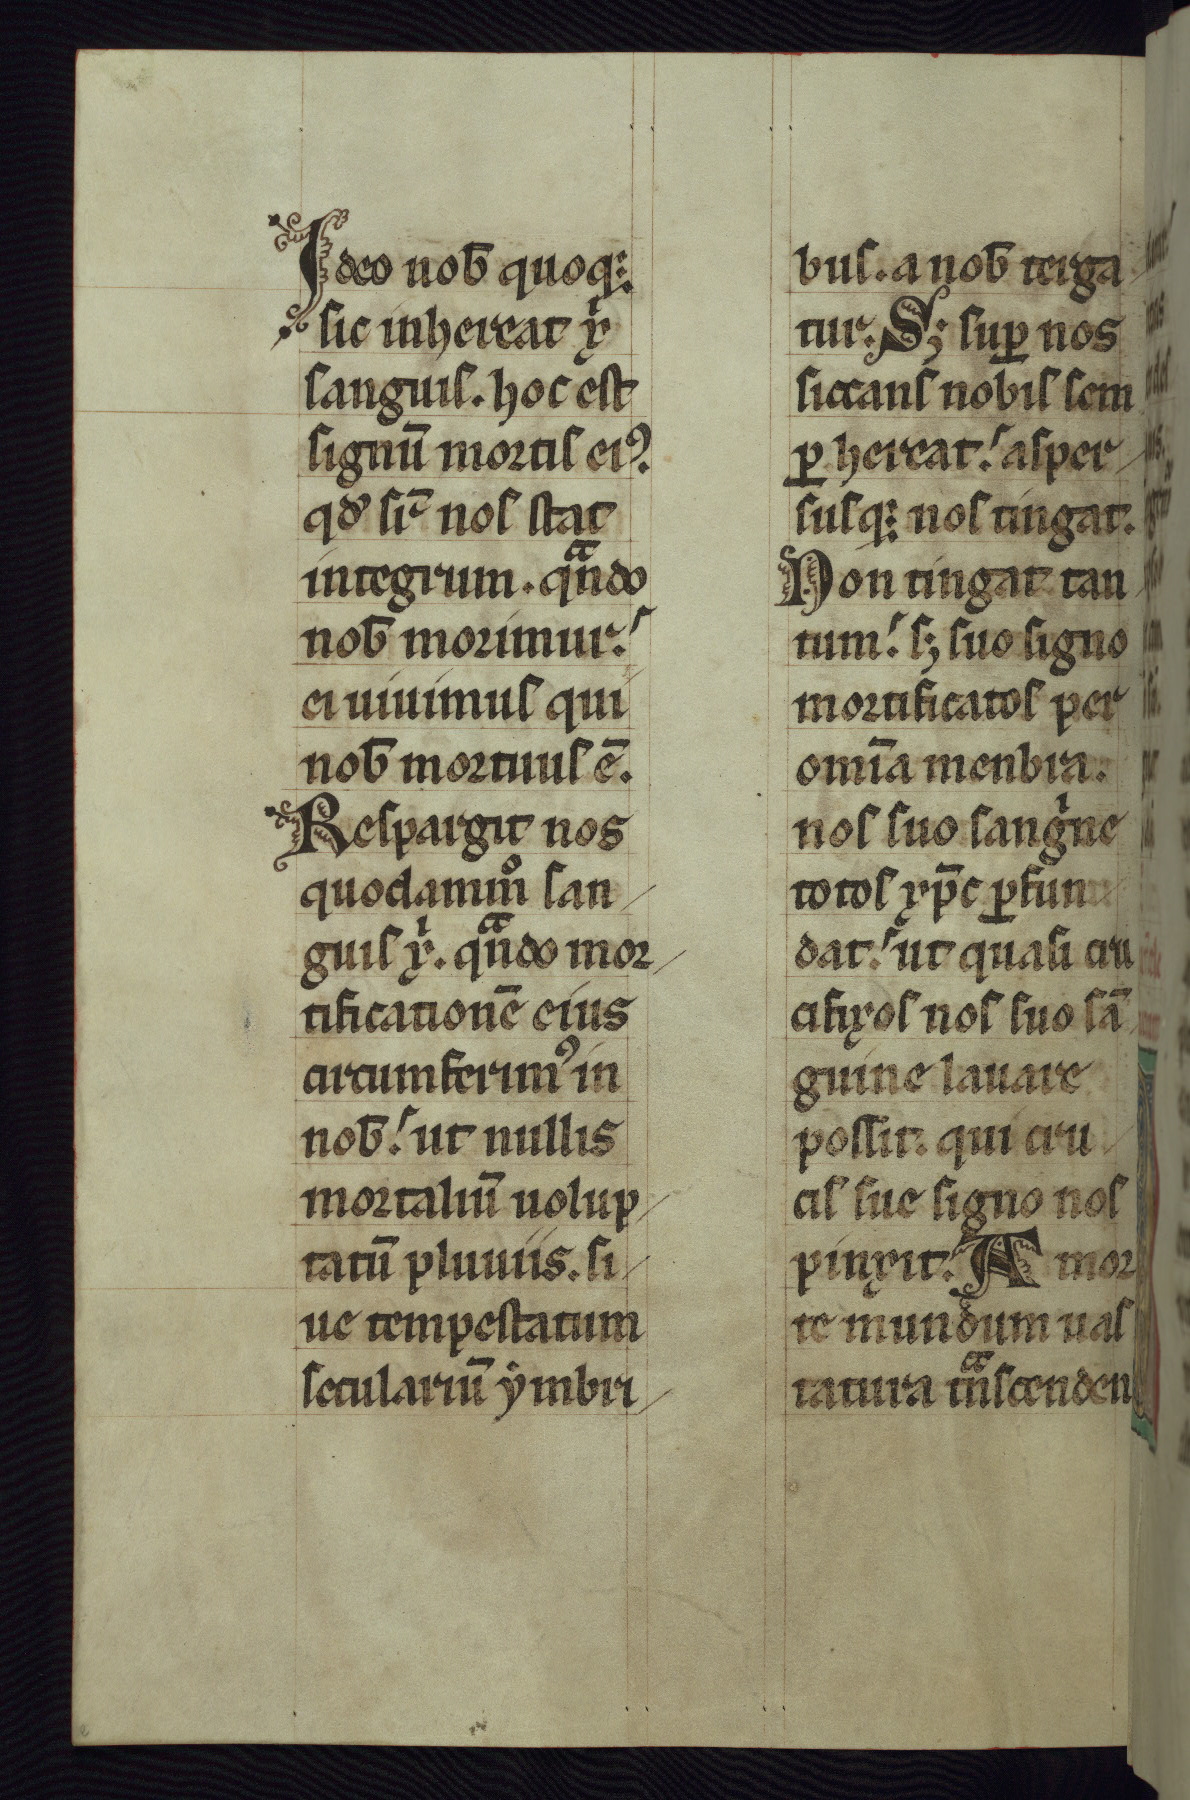 Ideo nob̅ quoq;
sic inhereat xͥ
sanguis. hoc est
signū mortis eiꝰ.
qđ si͛c nos stat
integrum. qᷓndo
nob̅ morimur.
ei uiuimus qui
nob̅ mortuus ē.
Respargit nos
quodammͦ san
guis xͥ. qᷓndo mor
tificationē eius
circumferimꝰ in
nob̅. ut nullis
mortaliū uolup
tatū pluuiis. si
ue tempestatum
seculariū ymbri
bus. a nob̅ terga
tur. Sꝫ suꝑ nos
siccans nobis sem
ꝑ hereat. asper
susq; nos tingat.
Non tingat tan
tum. sꝫ suo signo
mortificatos per
omīa menbra.
nos suo sangͥne
totos xp̄c ꝑfun
dat. ut quasi cru
cifixos nos suo sā
guine lauare
possit. qui cru
cis sue signo nos
pinxit. A mor
te mundum uas
tatura tᷓnscenden